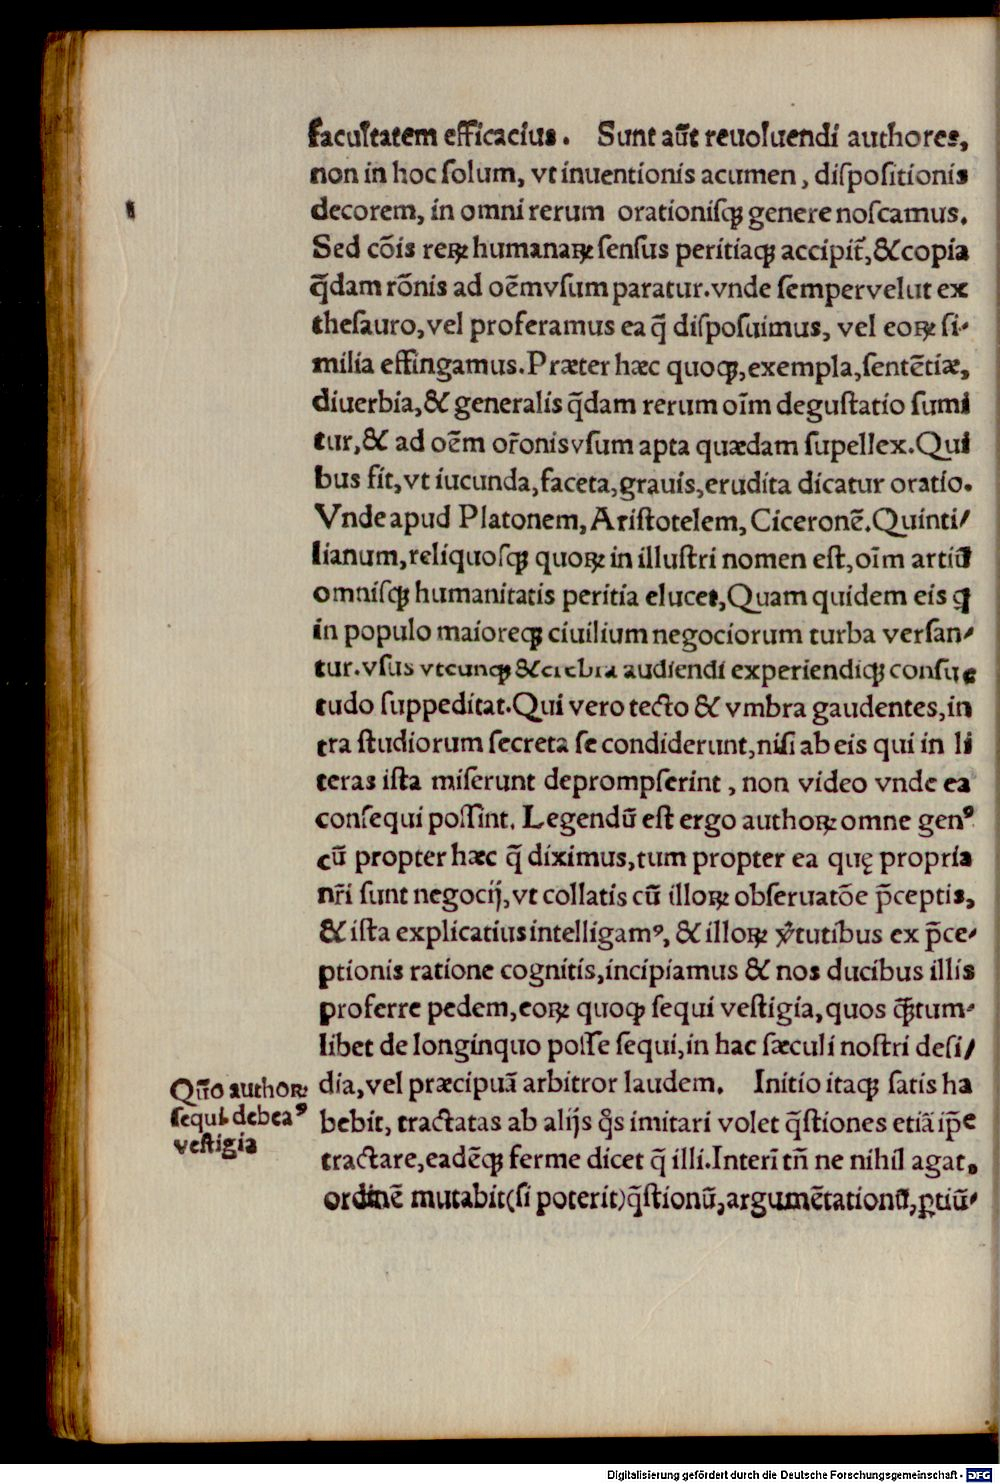 facultatem efficacius. Sunt aūt reuoluendi authores,
non in hoc ſolum, vt inuentionis acumen, diſpoſitionis
decorem, in omni rerum orationiſꝙ genere noſcamus.
Sed cōis reꝝ humanaꝝ ſenſus peritiaꝙ accipit̄, & copia
q̄dam rōnis ad oēmvſum paratur. vnde ſempervelut ex
theſauro, vel proferamus ea q̄ diſpoſuimus, vel eoꝝ ſi⸗
milia effingamus. Præter hæc quoꝙ, exempla, ſentētiæ,
diuerbia, & generalis q̄dam rerum oīm deguſtatio ſumi
tur, & ad oēm or̄onis vſum apta quædam ſupellex. Qui
bus fit, vt iucunda, faceta, grauis, erudita dicatur oratio.
Vnde apud Platonem, Ariſtotelem, Ciceronē. Quinti/
lianum, reliquoſꝙ quoꝝ in illuſtri nomen eſt, oīm artiū
omniſꝙ humanitatis peritia elucet, Quam quidem eis ꝙ
in populo maioreꝙ ciuilium negociorum turba verſan⸗
tur. vſus vtcunꝙ & crebra audiendi experiendiꝙ conſue
tudo ſuppeditat. Qui vero tecto & vmbra gaudentes, in
tra ſtudiorum ſecreta ſe condiderunt, niſi ab eis qui in li
teras iſta miſerunt deprompſerint, non video vnde ea
conſequi poſſint. Legendū eſt ergo authoꝝ omne genꝰ
cū propter hæc q̄ diximus, tum propter ea quę propria
nr̄i ſunt negocij, vt collatis cū illoꝝ obſeruatōe p̄ceptis,
& iſta explicatius intelligamꝰ, & illoꝝ v̓tutibus ex p̄ce⸗
ptionis ratione cognitis, incipiamus & nos ducibus illis
proferre pedem, eoꝝ quoꝙ ſequi veſtigia, quos ꝙ̄tum⸗
libet de longinquo poſſe ſequi, in hac ſæculi noſtri deſi/
dia, vel præcipuā arbitror laudem. Initio itaꝙ ſatis ha
bebit, tractatas ab alijs q̄s imitari volet q̄ſtiones etiā ip̄e
tractare, eadēꝙ ferme dicet q̄ illi. Interī tn̄ ne nihil agat,
ordinē mutabit (ſi poterit) q̄ſtionū, argumētationū, ꝑtiū⸗
Qūo authoꝝ
ſequi debeaꝰ
veſtigia
Digitalisierung gefördert durch die Deutsche Forschungsgemeinschaft - DFG